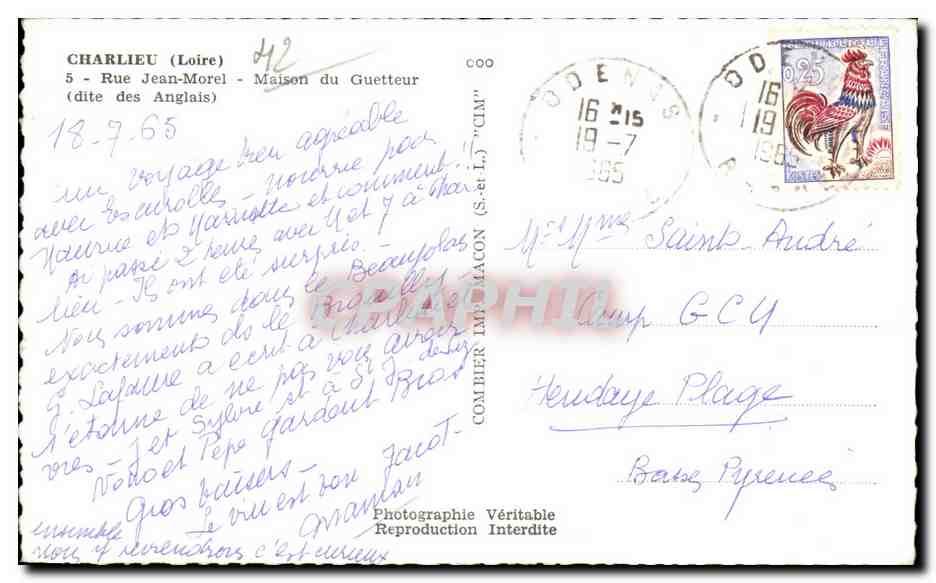 CHARLIEU (Loire)
42
5 - Rue Jean-Morel - Maison du Guetteur
(dite des Anglais)
18.7.65
un voyage bien agréable
avec Escarolles - nourrie par
Maurice et Mariotte et comment.
Ai passé 2 heures avec M et 7 à Char
lieu - Ils ont été surpris. -
Nous sommes dans le Beaujolais
exactement ds le Brouilly
G. Lafarre a écrit à Charlieu
s'étonne de ne pas vous avoir
vres - J et Sylvie st à St J de Luz
Nono et Pépé gardent Bras
Gros baisers -
Le vin est bon Jacot-
Maman
ensemble
nous y reviendrons c'est curieux
COO
COMBIER IMP. MACON (S.-et-L.) "CIM"
ODENAS
16 H 15
19 -7
1965
OD
16
19
1965
0,25
POSTES
Mr Mme Saint-André
Camp GCU
Hendaye Plage
Basses Pyrénées
CPAPHIL
Photographie Véritable
Reproduction Interdite